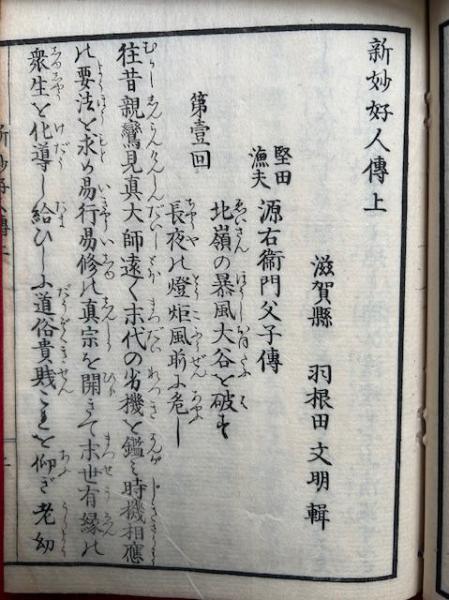 新妙好人傳上
滋賀縣　羽根田文明輯
堅田漁夫　源右衛門父子傳
第壹回
北嶺の暴風大谷を破る
長夜の燈炬風前に危し
往昔親鸞見真大師遠く末代の劣機を鑑ミ時機相應
の要法を求め易行易修の真宗を開きて末世有縁の
衆生を化導し給ひしふ道俗貴賤これを仰ぎ老幼